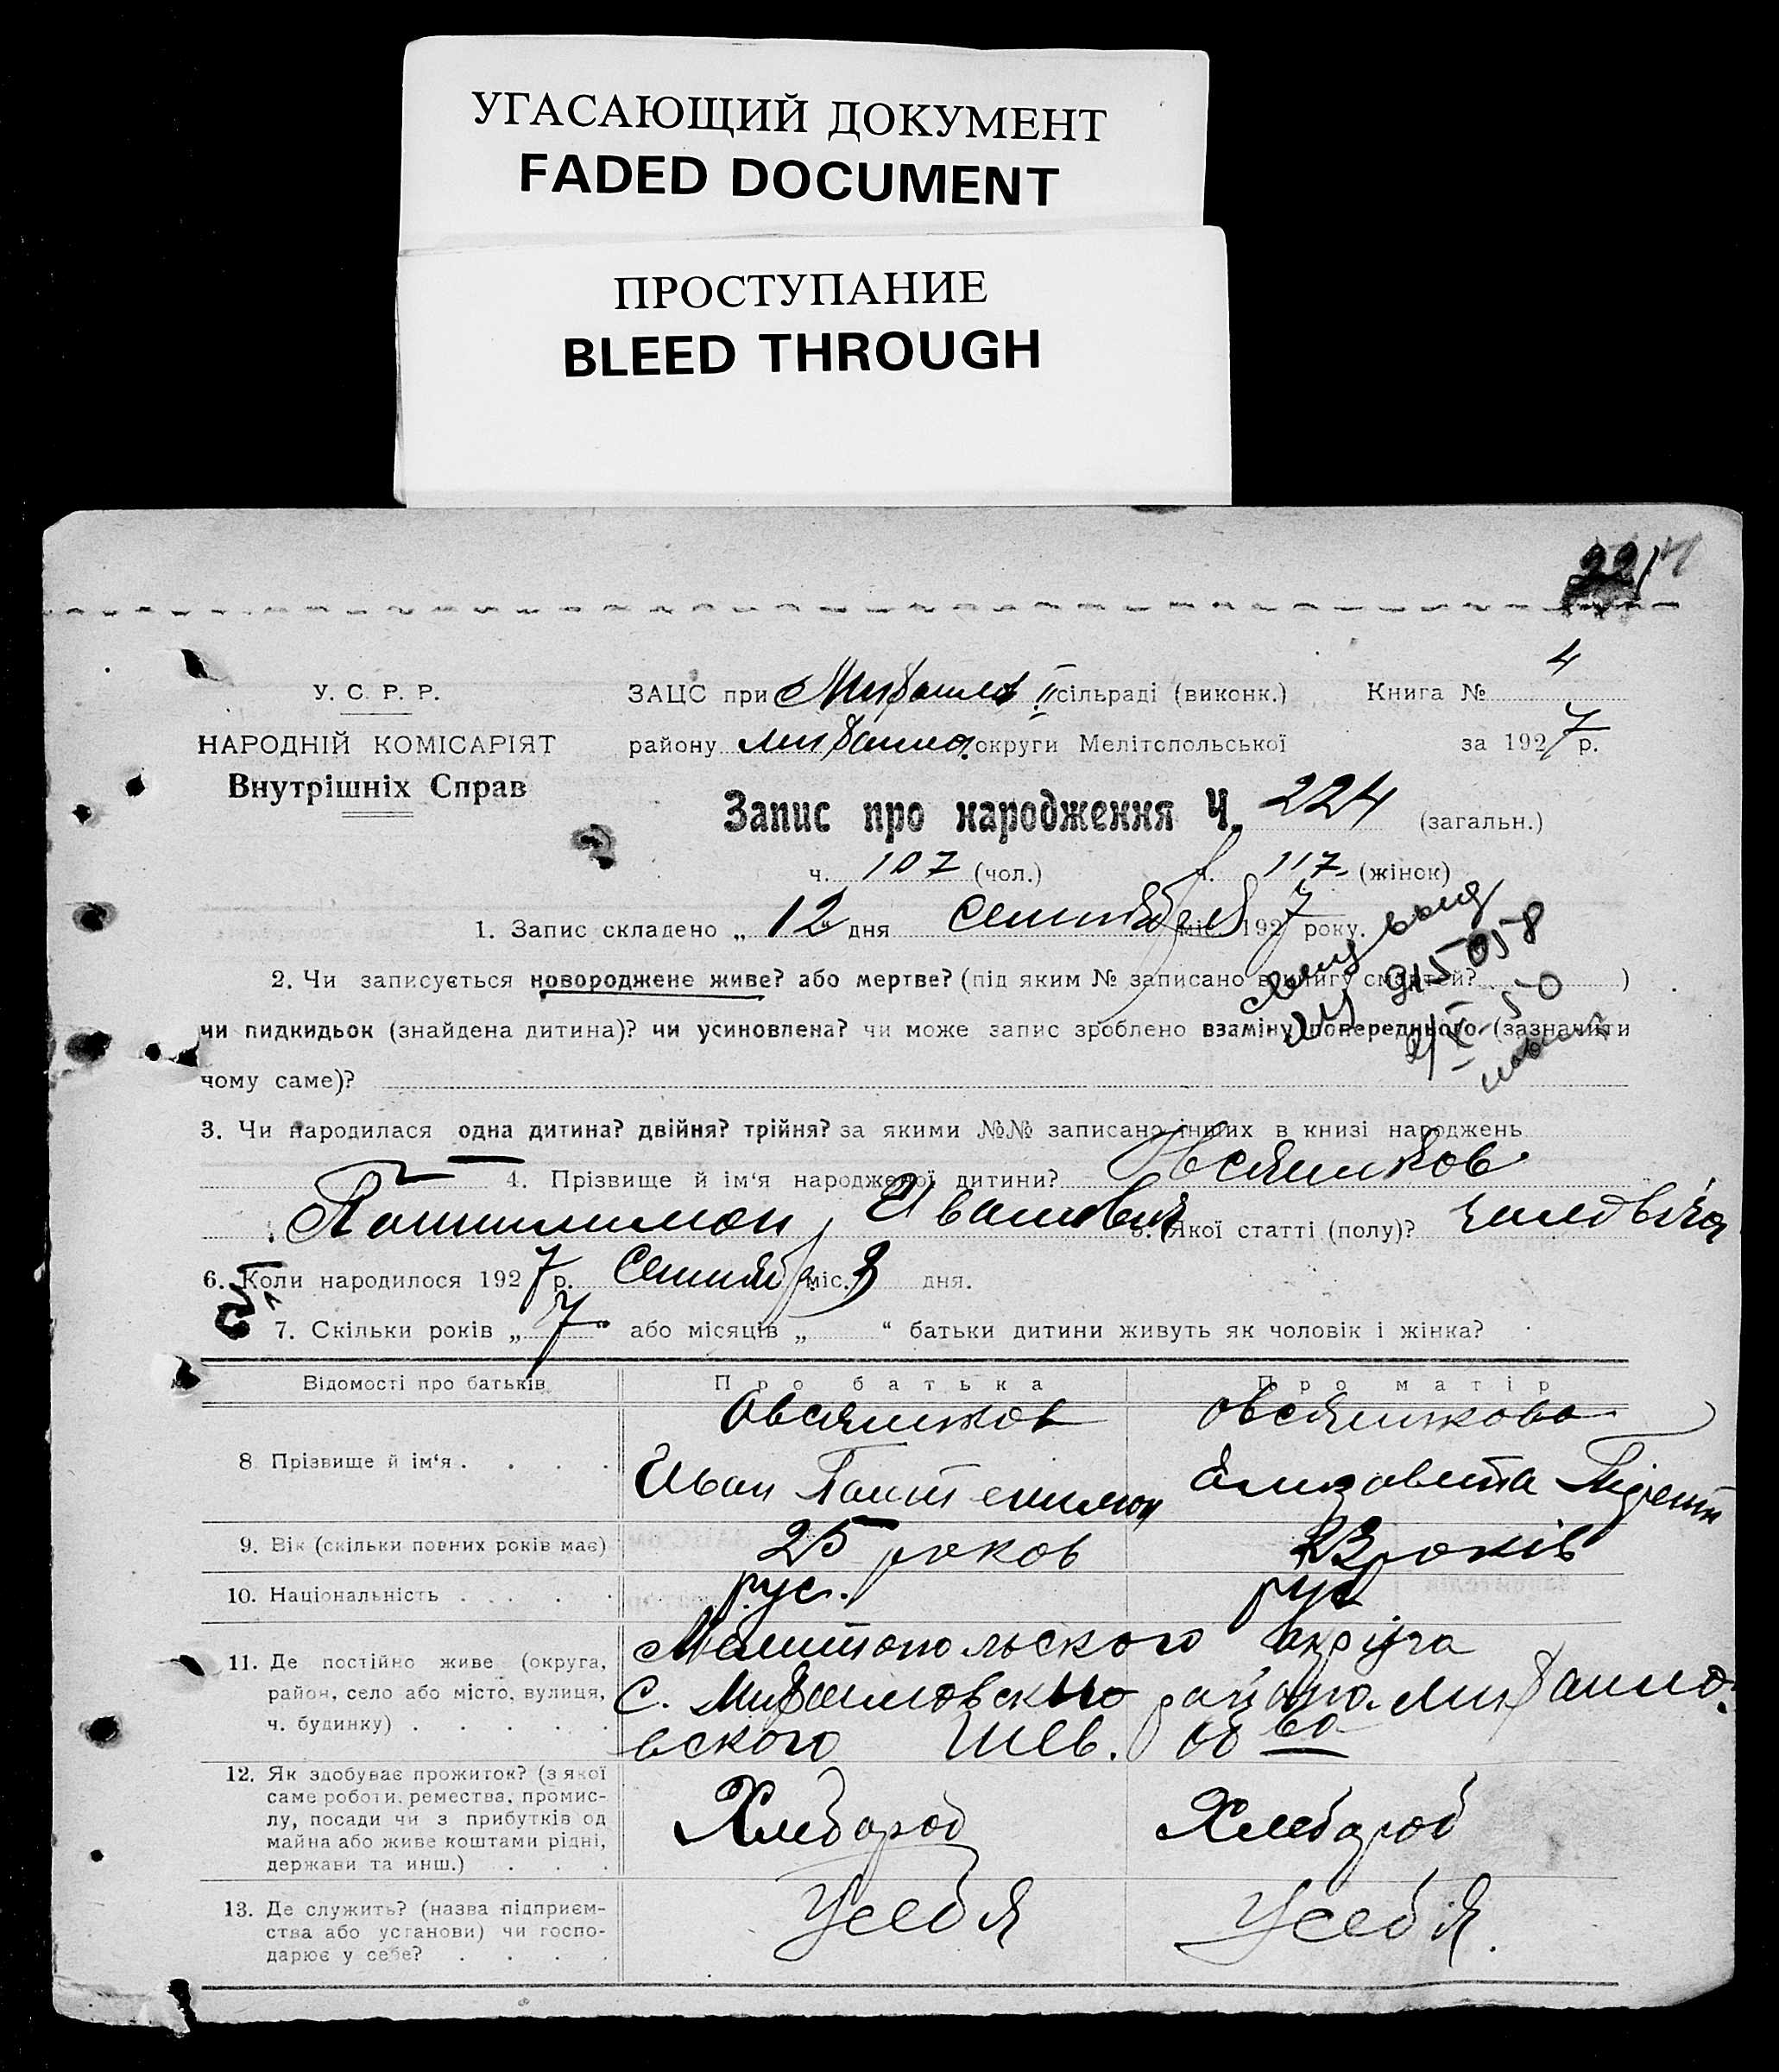 УГАСАЮЩИЙ ДОКУМЕНТ
FADED DOCUMENT
ПРОСТУПАНИЕ
BLEED THROUGH
У. С. Р. Р.
НАРОДНІЙ КОМІСАРІЯТ
Внутрішніх Справ
ЗАЦС при II сільраді (виконк.) Книга № 4
району округи Мелітопольської за 1927 р.
Запис про народження Ч. 224 (загальн.)
ч. 107 (чол.) ч. 117 (жінок)
1. Запис складено „ 12 дня сентября міс. 1927 року.
2. Чи записується новороджене живе? або мертве? (під яким № записано в книгу смертей? )
чи пидкидьок (знайдена дитина)? чи усиновлена? чи може запис зроблено взаміну попереднього (зазначити
чому саме)?
3. Чи народилася одна дитина? двійня? трійня? за якими №№ записано інших в книзі народжень
4. Прізвище й ім‘я народженої дитини? Овсянников
Иванович 5. Якої статті (полу)?
6. Коли народилося 1927 р. Сентябр міс. 3 дня.
7. Скільки років „ 7 “ або місяців „ “ батьки дитини живуть як чоловік і жінка?
Відомості про батьків Про батька Про матір
Овсянников Овсянникова
8 Прізвище й ім‘я . . . . Иван Елизавета
9. Вік (скільки повних років має) 25 роков 23 років
10. Національність . . . . рус. рус
11. Де постійно живе (округа, район, село або місто, вулиця, ч. будинку) . . . . .
Мелитопольского округа
с. района
вского об ва
12. Як здобуває прожиток? (з якої саме роботи, ремества, промислу, посади чи з прибутків од майна або живе коштами рідні, держави та инш.) . . . Хлебороб Хлебороб
13. Де служить? (назва підприємства або установи) чи господарює у себе? . . . . У себя У себя.